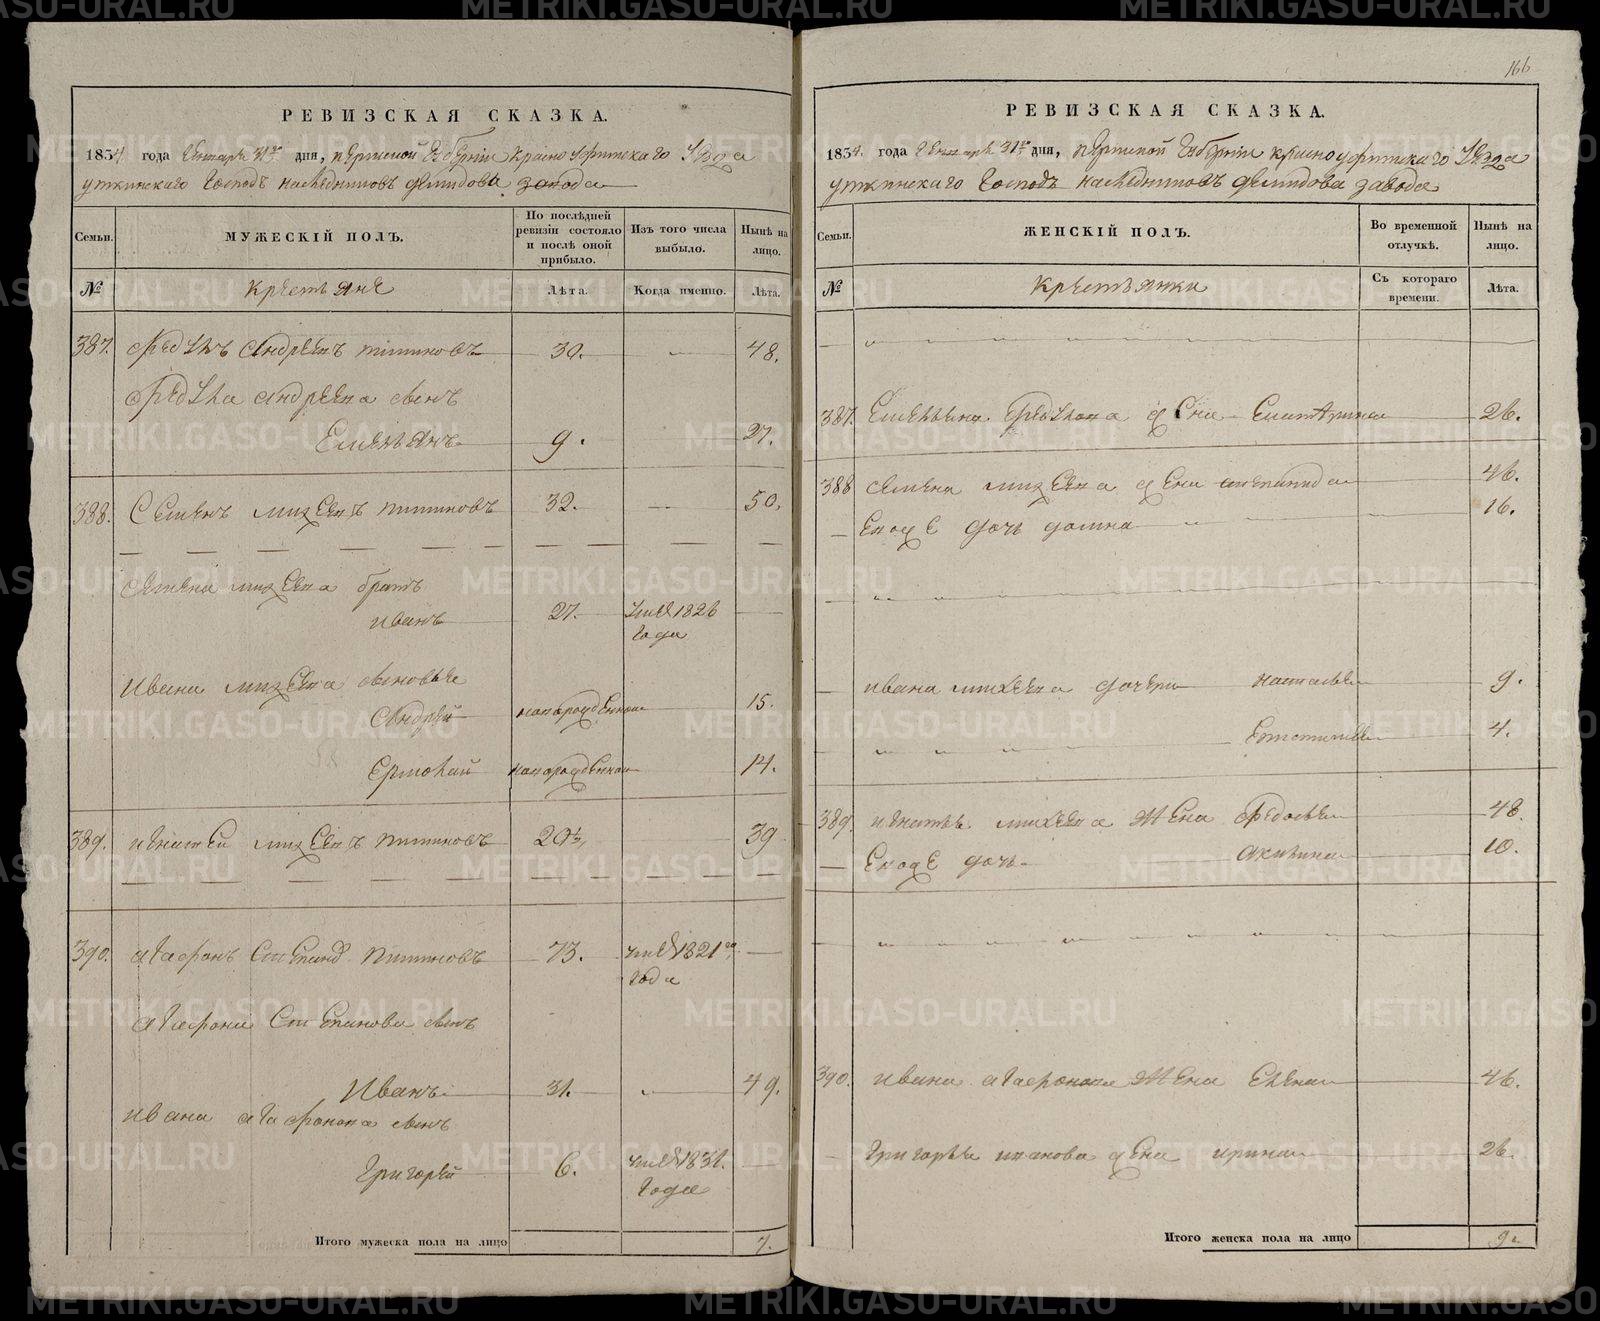 METRIKI.GASO-URAL.RU
166
РЕВИЗСКАЯ СКАЗКА.
1834 года Генваря 31го дня, Пермской Губернии Красноуфимскаго Уезда
уткинскаго Господъ наследниковъ демидова завода
Семьи.
МУЖЕСКІЙ ПОЛЪ.
По послѣдней ревизіи состояло и послѣ оной прибыло.
Изъ того числа выбыло.
Нынѣ на лицо.
№
Крестьяне
Лѣта.
Когда именно.
Лѣта.
387. Федулъ Андреевъ 30. 48.
Федула Андреева сынъ
Емельянъ 9. 27.
388. Семенъ михеевъ 32. 50.
Семена михеева братъ
иванъ 27. 1826
года
Ивана михеева сыновья
Андрей новорожденной 15.
Ермолай новорожденной 14.
389. игнатей михеевъ 20½ 39
390. агафонъ Степановъ 73. 1821го
года
агафона Степанова сынъ
Иванъ 31. 49.
ивана агафонова сынъ
Григорей 6. 1831.
года
Итого мужеска пола на лицо 7.
РЕВИЗСКАЯ СКАЗКА.
1834. года Генваря 31го дня, Пермской Губернии красноуфимскаго Уезда
уткинскаго Господъ наследниковъ демидова завода
Семьи.
ЖЕНСКІЙ ПОЛЪ.
Во временной отлучкѣ.
Нынѣ на лицо.
№
Крестьянки
Съ котораго времени.
Лѣта.
387. Емельяна Федулова жена Екатерина 26.
388 Семена михеева жена степанида 46.
Ево же дочь домна 16.
ивана михеева дочери наталья 9.
4.
389. игнатья михеева жена Федосья 48.
Ево же дочь акилина 10.
390. ивана агафонова жена Елена 46.
Григорья иванова жена ирина 26.
Итого женска пола на лицо 9.